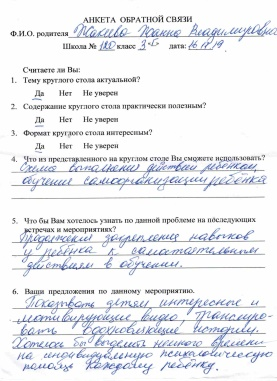 АНКЕТА ОБРАТНОЙ СВЯЗИ
Ф.И.О. родителя Жанна Владимировна
Школа № 120 класс 3-Б дата: 16.11.19.
Считаете ли Вы:
1. Тему круглого стола актуальной?
Да Нет Не уверен
2. Содержание круглого стола практически полезным?
Да Нет Не уверен
3. Формат круглого стола интересным?
Да Нет Не уверен
4. Что из представленного на круглом столе Вы сможете использовать?
Схема выполнения действий ребёнком,
обучения самоорганизации ребёнка
5. Что бы Вам хотелось узнать по данной проблеме на последующих
встречах и мероприятиях?
Продолжение закрепления навыков
у ребёнка к самостоятельным
действиям в обучении.
6. Ваши предложения по данному мероприятию.
Показывать детям интересные и
мотивирующие видео. Трансмро-
вать вдохновляющие истории.
Хотелось бы выделить немного времени
на индивидуальную психологическую
помощь каждому ребёнку.